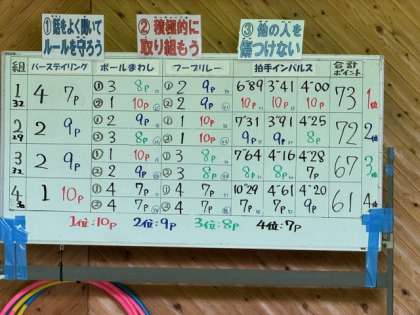 ①話をよく聞いて
ルールを守ろう
②積極的に
取り組もう
③他の人を
傷つけない
組 バースデイリング ボールまわし フープリレー 拍手インパルス 合計ポイント
1 4 7P ① 3 8P ① 2 9P 6"89 3"41 4"00 73 1位
32 ② 1 10P ② 2 9P 10P 10P 10P
2 2 9P ① 2 9P ① 1 10P 7"31 3"91 4"25 72 2位
29 ② 3 8P ② 1 10P 9P 9P 8P
3 2 9P ① 1 10P ① 3 8P 7"64 4"16 4"28 67 3位
32 ② 2 9P ② 3 8P 8P 8P 7P
4 1 10P ① 4 7P ① 4 7P 10"29 4"61 4"20 61 4位
② 4 7P ② 4 7P 7P 7P 9P
1位:10P 2位:9P 3位:8P 4位:7P